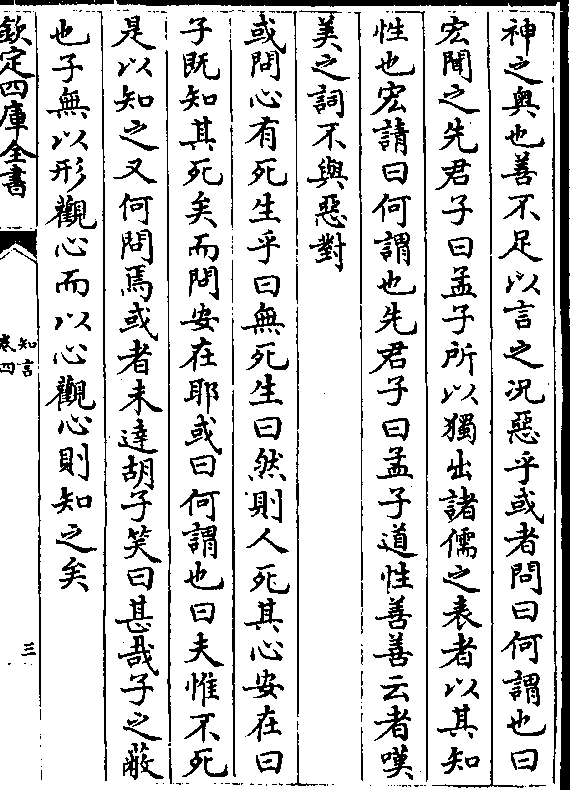 神之奥也善不足以言之况惡乎或者問曰何謂也曰
宏聞之先君子曰孟子所以獨出諸儒之表者以其知
性也宏請曰何謂也先君子曰孟子道性善善云者嘆
美之詞不與惡對
或問心有死生乎曰無死生曰然則人死其心安在曰
子既知其死矣而問安在耶或曰何謂也曰夫惟不死
是以知之又何問焉或者未達胡子笑曰甚哉子之蔽
也子無以形觀心而以心觀心則知之矣
欽定四庫全書
知言
卷四
三